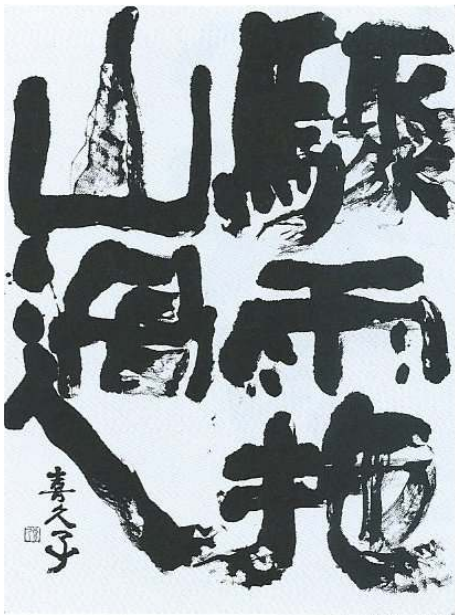 驟雨抱
山過
喜久子